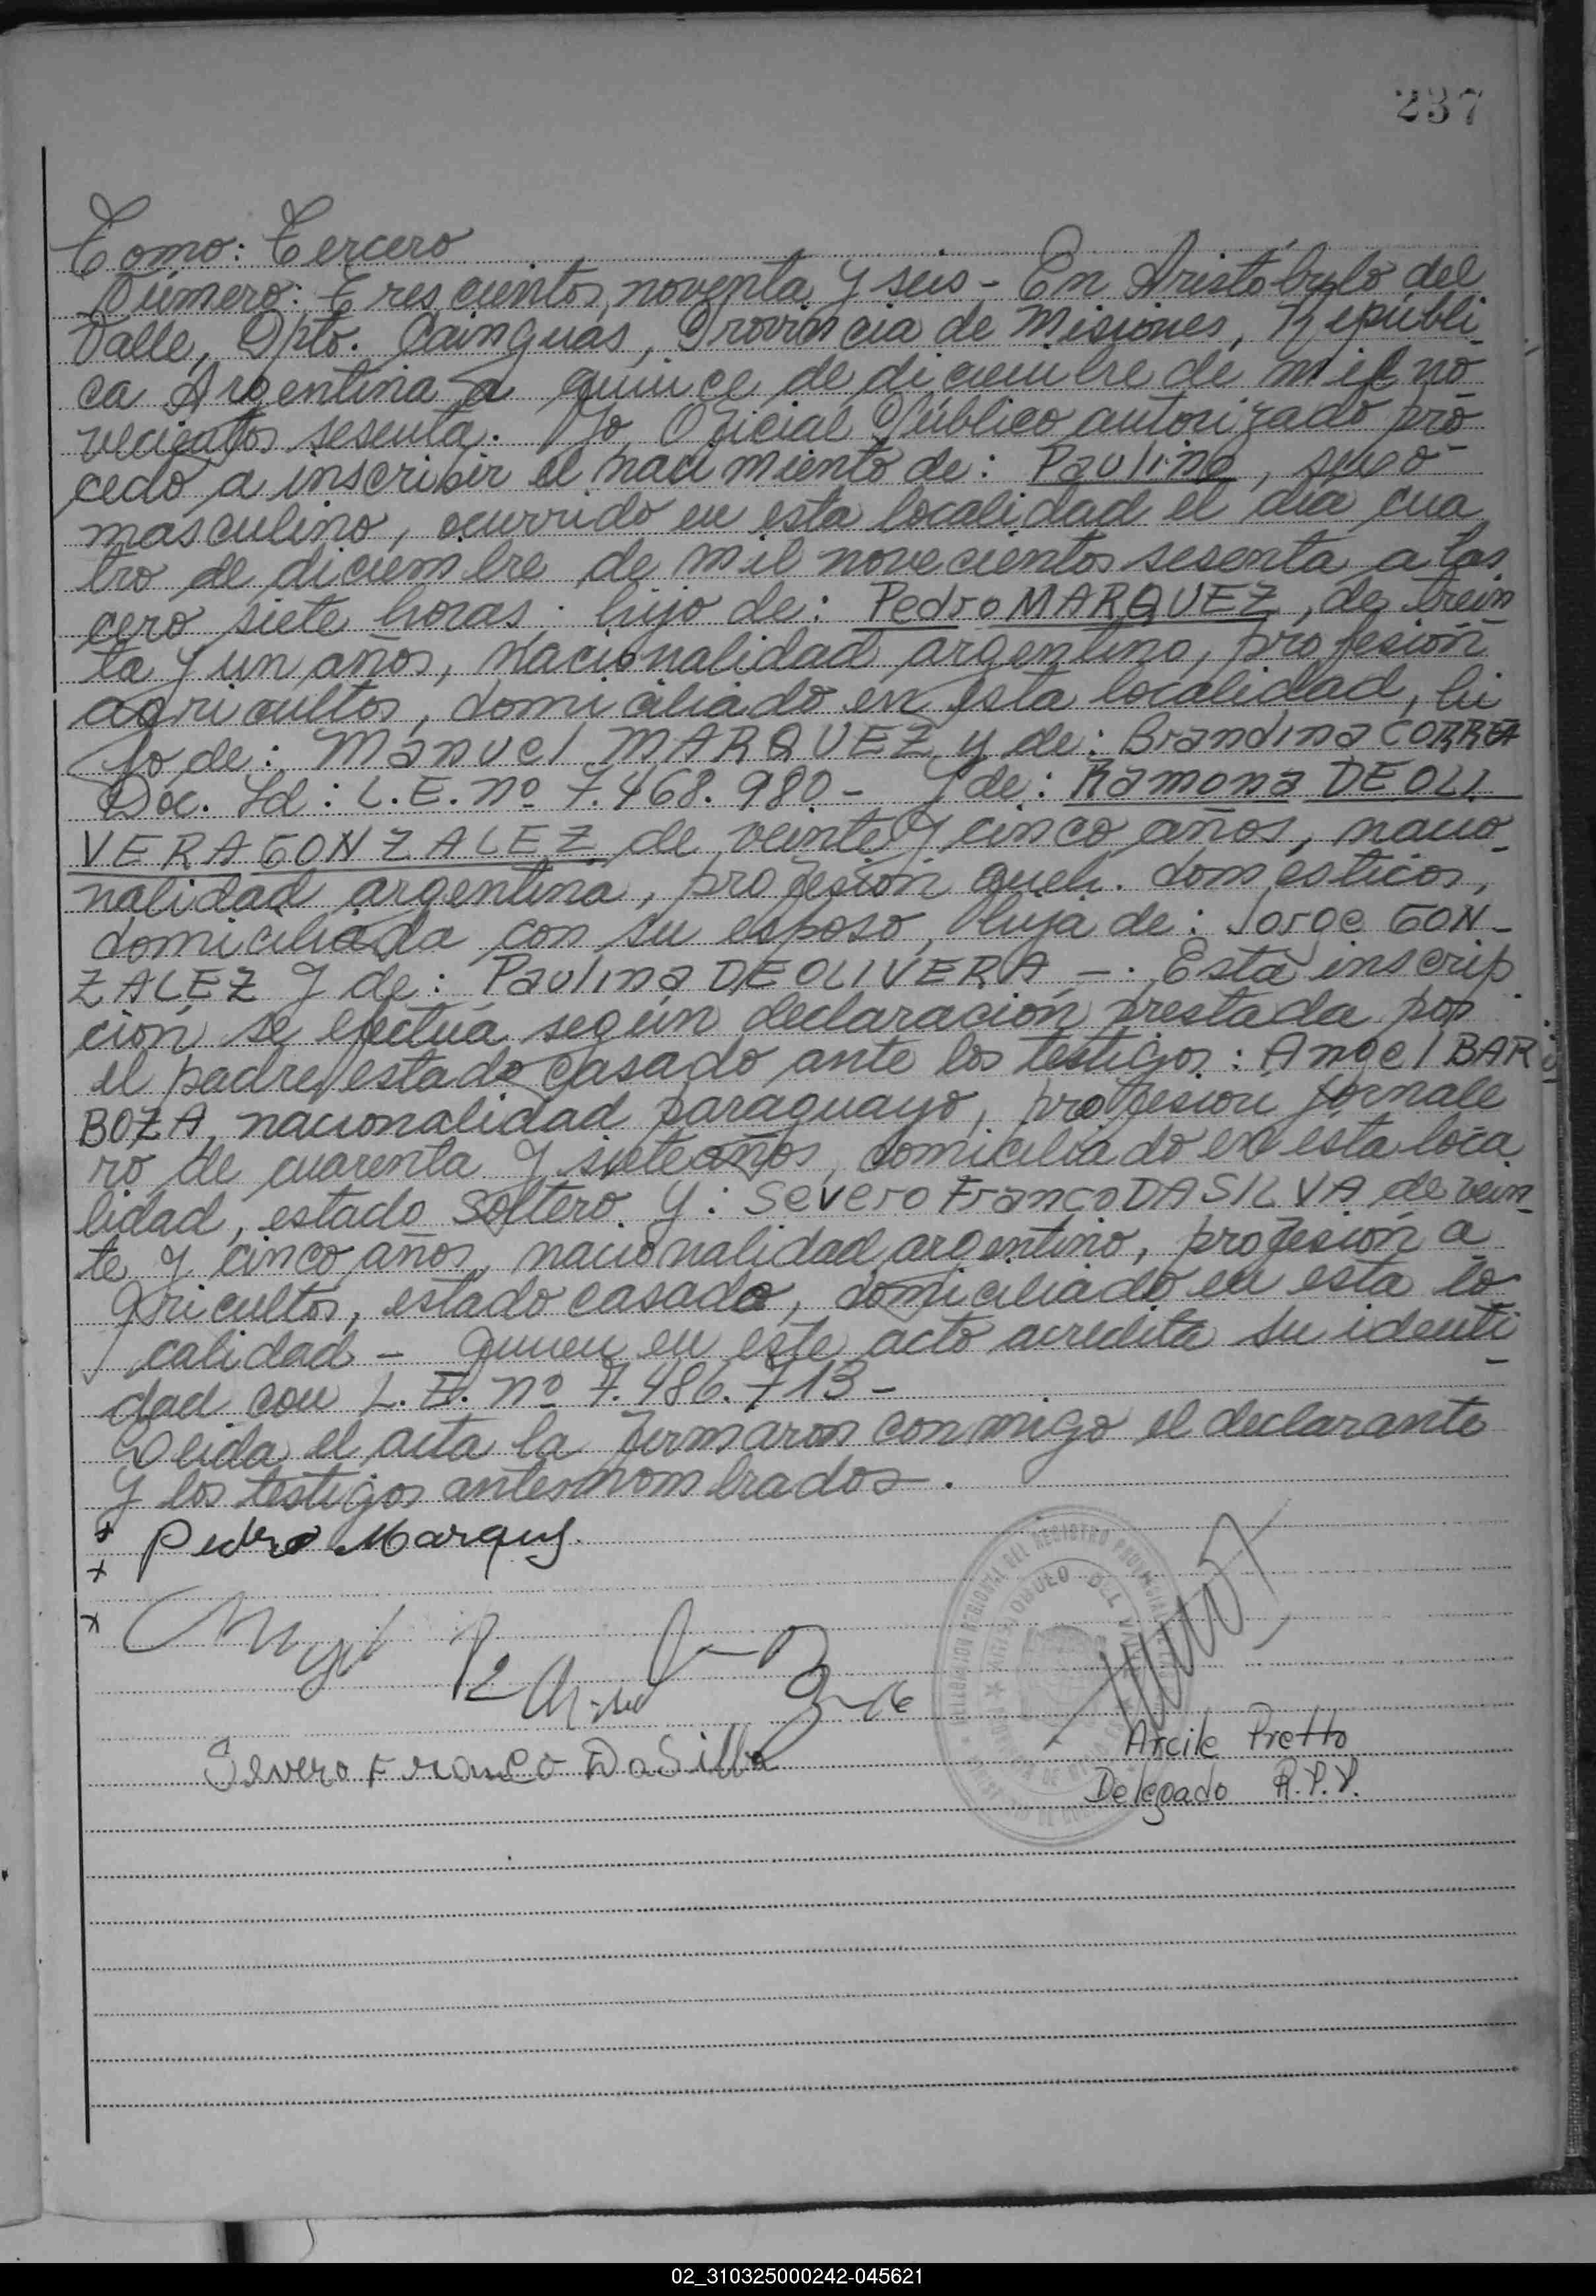 237
Tomo: Tercero
Número: Trescientos noventa y seis - En Aristóbulo del
Valle, Dpto. Cainguás, Provincia de Misiones, Repúbli
ca Argentina a quince de diciembre de mil no
vecientos sesenta. Yo, Oficial Público autorizado pro
cedo a inscribir el nacimiento de: Paulino, sexo
masculino, ocurrido en esta localidad el día cua
tro de diciembre de mil novecientos sesenta a las
cero siete horas. hijo de: Pedro MARQUEZ, de trein
ta y un años, nacionalidad argentino, profesión
agricultor, domiciliado en esta localidad, hi
jo de: Manuel MARQUEZ y de: Brandina CORREA
Doc. Id: L.E. Nº 7.468.980 - y de: Ramona DE OLI
VERA GONZALEZ de veinte y cinco años, nacio
nalidad argentina, profesión queh. domésticos,
domiciliada con su esposo, hija de: Jorge GON-
ZALEZ y de: Paulina DE OLIVERA -. Esta inscrip
ción se efectúa según declaración prestada por
el padre, estado casado ante los testigos: Angel BAR
BOZA, nacionalidad paraguayo, profesión jornale
ro de cuarenta y siete años, domiciliado en esta loca
lidad, estado soltero. y: Severo Franco DA SILVA de vein
te y cinco años, nacionalidad argentino, profesión a
gricultor, estado casado, domiciliado en esta lo
calidad - quien en este acto acredita su identi
dad con L.E. Nº 7.486.713-
Leida el acta la firmaron conmigo el declarante
y los testigos antes nombrados.
x Pedro Marques.
x
x Angel
Severo Franco Da Silba
Arcile Pretto
Delegado R.P.P.
02_310325000242-045621